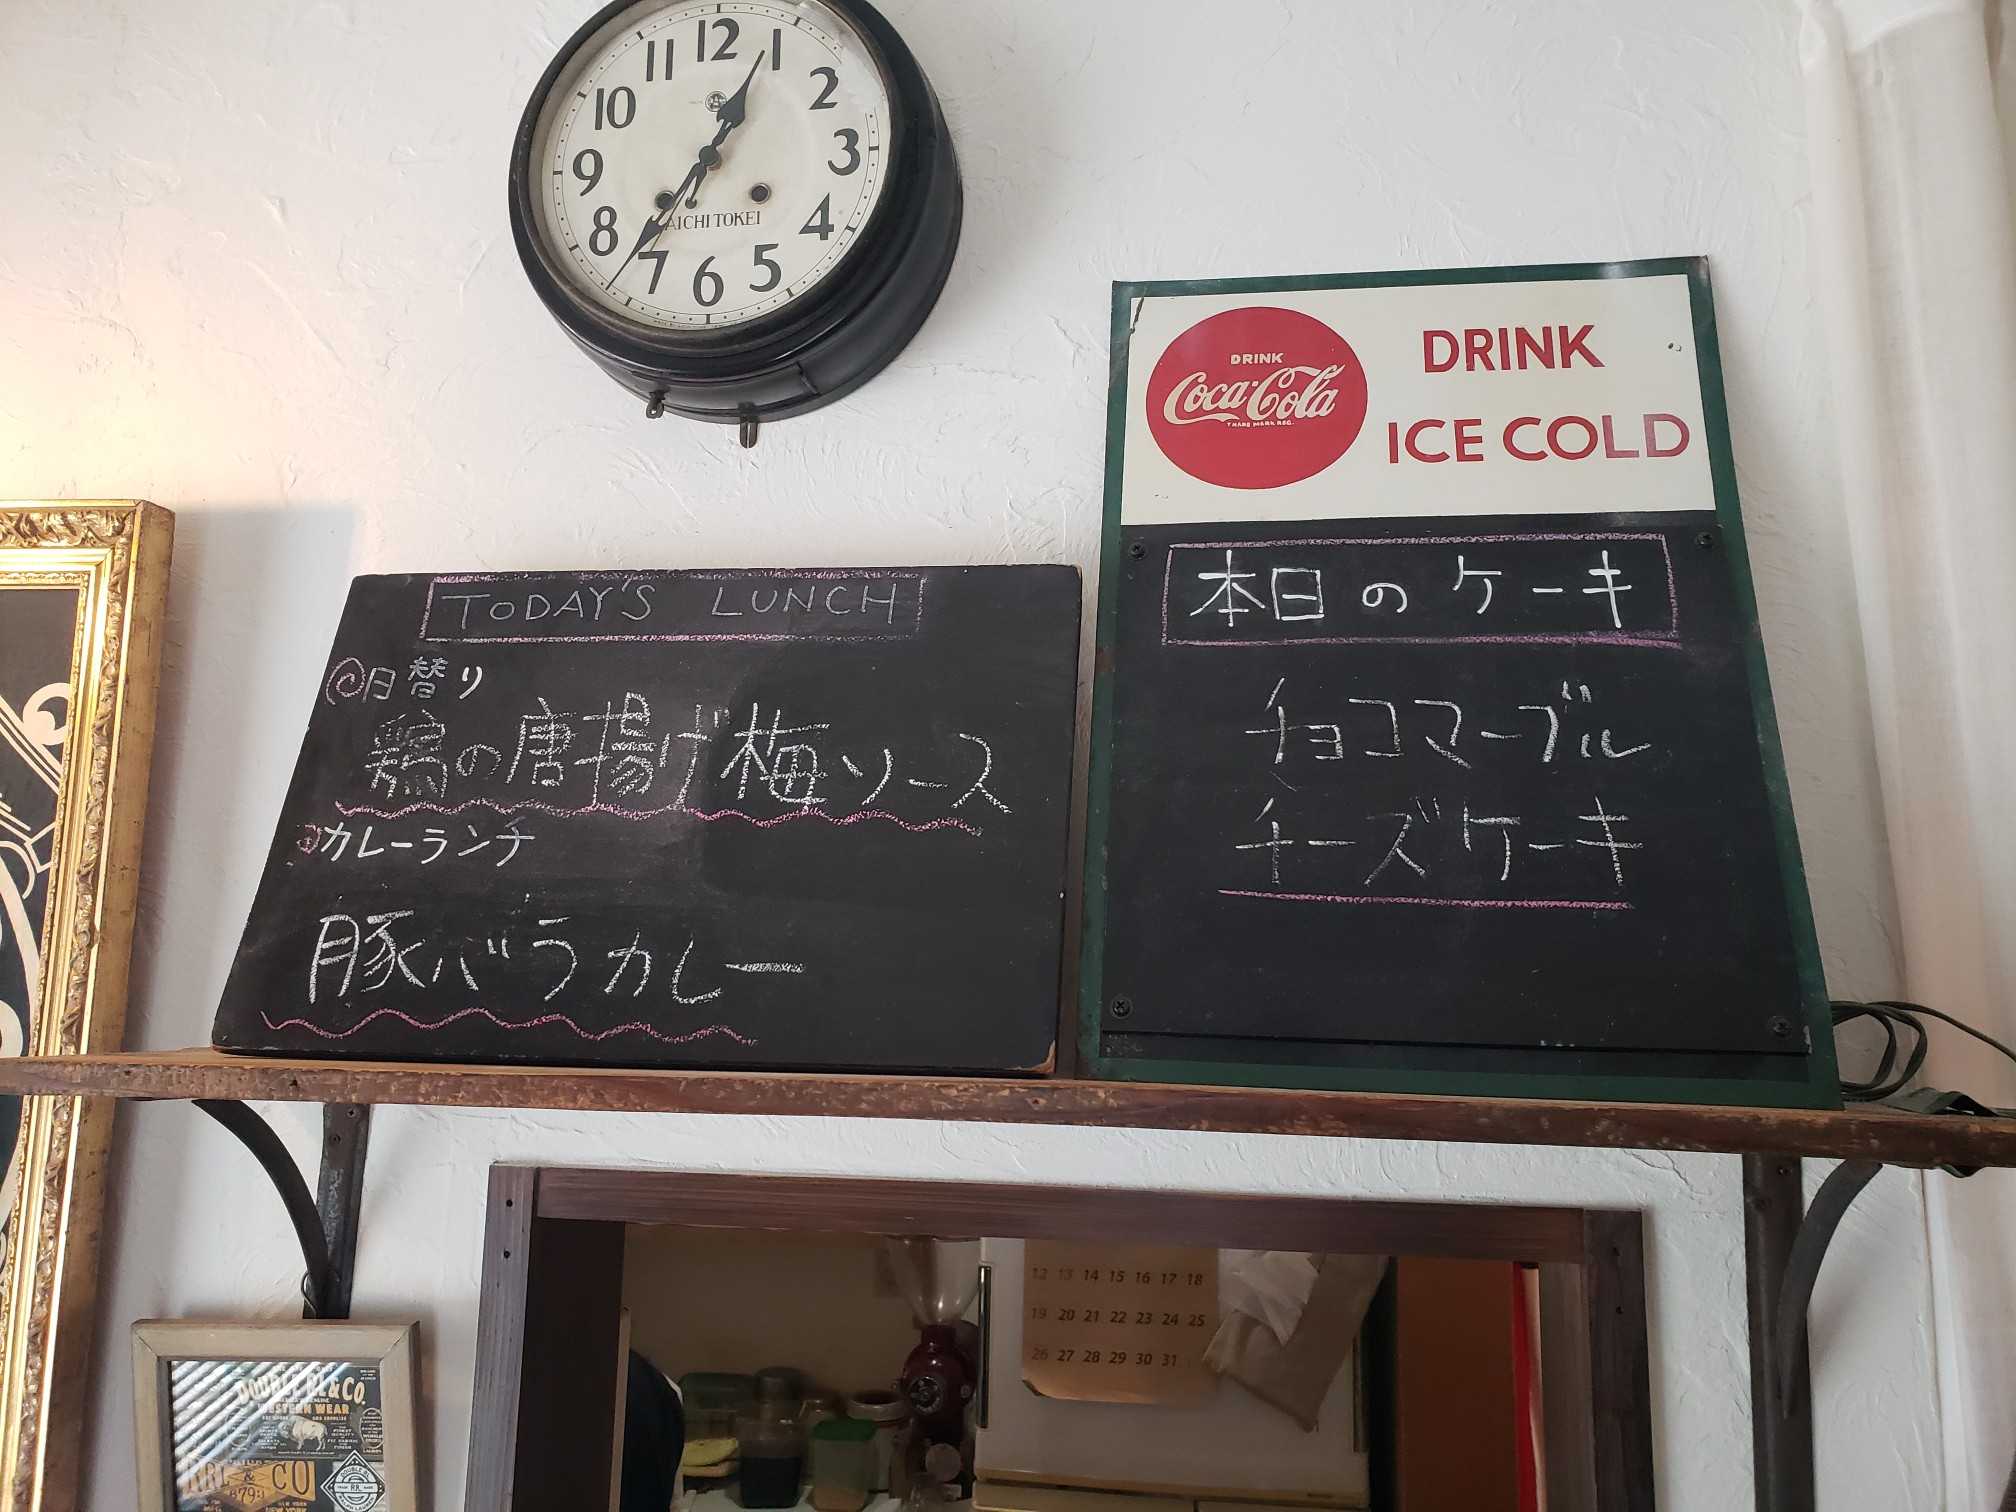 12
11 1
10 2
9 3
8 4
7 5
6
AICHI TOKEI
DRINK
Coca-Cola
TRADE MARK REG.
DRINK
ICE COLD
TODAY'S LUNCH
日替り
鶏の唐揚げ梅ソース
カレーランチ
豚バラカレー
本日のケーキ
チョコマーブル
チーズケーキ
12 13 14 15 16 17 18
19 20 21 22 23 24 25
26 27 28 29 30 31
DOUBLE RL & CO.
WESTERN WEAR
RRL & CO
NEW YORK
DOUBLE RL
RR
RALPH LAUREN